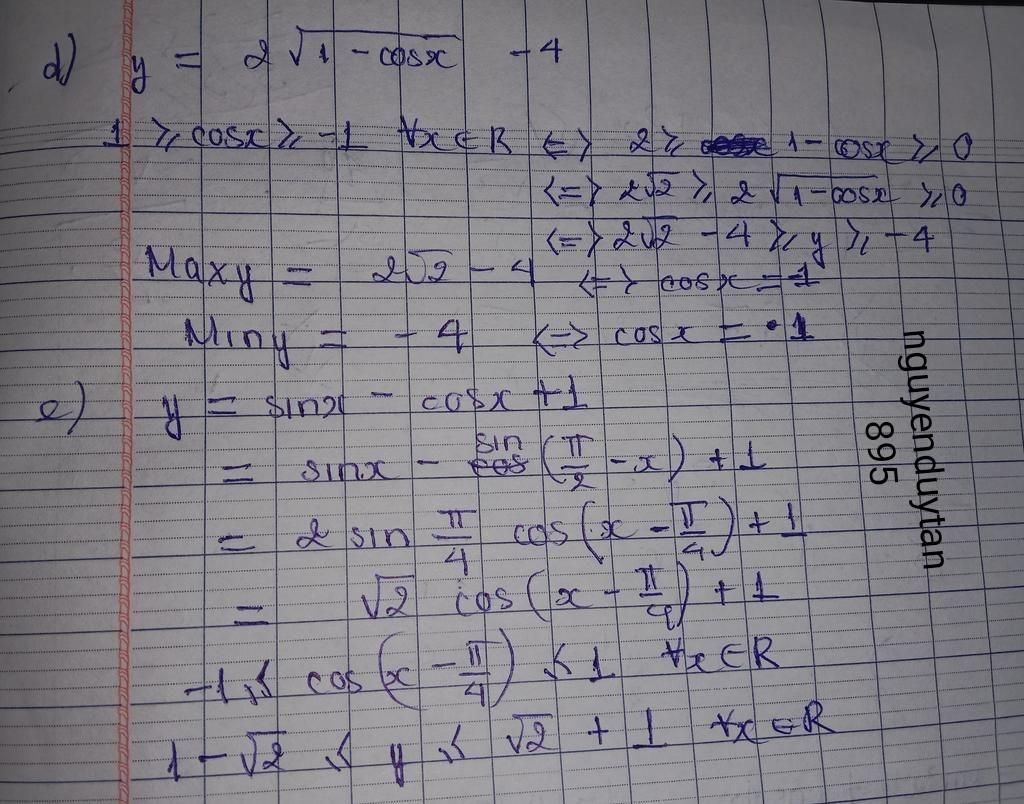 d) y = 2√(1-cosx) -4
1 ⩾ cosx ⩾ -1 ∀x∈R <=> 2 ⩾ 1-cosx ⩾ 0
<=> 2√2 ⩾ 2√(1-cosx) ⩾ 0
<=> 2√2 - 4 ⩾ y ⩾ -4
Maxy = 2√2 - 4 <=> cosx = -1
Miny = -4 <=> cosx = 1
e) y = sinx - cosx +1
= sinx - sin(π/2 - x) + 1
= 2 sin π/4 cos(x - π/4) + 1
= √2 cos(x - π/4) + 1
-1 ⩽ cos(x - π/4) ⩽ 1 ∀x∈R
1-√2 ⩽ y ⩽ √2 + 1 ∀x∈R
nguyenduytan
895